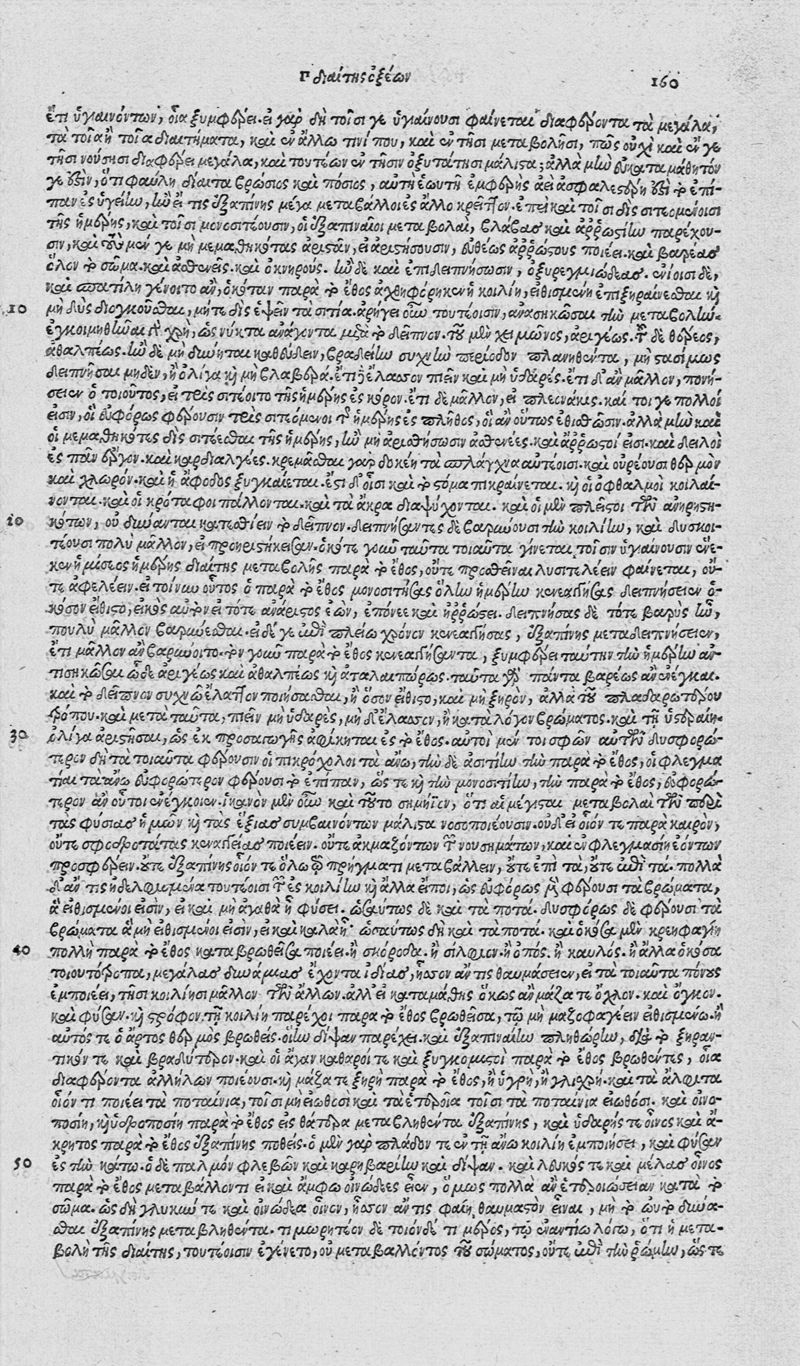 Γ διαίτης ὀξέων 160
ἔτι ὑγιαινόντων, οἷα ξυμφέρει. εἰ γὰρ δὴ τοῖσί γε ὑγιαίνουσι φαίνεται διαφέροντα τὰ μεγάλα,
τὰ τοῖα ἢ τοῖα διαιτήματα, καὶ ἐν ἄλλῳ τινί που, καὶ ἐν τῇσι μεταβολῇσι, πῶς οὐχὶ καὶ ἔν γε
τῇσι νούσοισι διαφέρει μεγάλα, καὶ τουτέων ἐν τῇσιν ὀξυτάτῃσι μάλιστα; ἀλλὰ μὴν εὐκαταμάθητόν
γε ἐστὶν, ὅτι φαύλη δίαιτα βρώσιος καὶ πόσιος, αὐτὴ ἑωυτῇ ἐμφερὴς ἀεὶ ἀσφαλεστέρη ἐστὶ τὸ ἐπί-
παν ἐς ὑγείην, ἢν εἴ τις ἐξαπίνης μέγα μεταβάλλοι ἐς ἄλλο κρεῖττον. ἐπεὶ καὶ τοῖσι δὶς σιτεομένοισι
τῆς ἡμέρης, καὶ τοῖσι μονοσιτέουσιν, αἱ ἐξαπιναῖοι μεταβολαὶ, βλάβας καὶ ἀρρωστίην παρέχου-
σιν, καὶ τοὺς μέν γε μὴ μεμαθηκότας ἀριστᾶν, εἰ ἀριστήσουσιν, εὐθέως ἀρρώστους ποιέει. καὶ βαρέας
ὅλον τὸ σῶμα. καὶ ἀσθενεῖς. καὶ ὀκνηρούς. ἢν δὲ καὶ ἐπιδειπνήσωσιν, ὀξυρεγμιώδεας. ἐνίοισι δὲ,
καὶ σπατίλη γένοιτο ἂν, ὁκόταν παρὰ τὸ ἔθος ἀχθηφόρηκεν ἡ κοιλίη, εἰθισμένη ἐπιξηραίνεσθαι καὶ
10 μὴ δὶς διογκοῦσθαι, μήτε δὶς ἕψειν τὰ σιτία. ἀρήγει οὖν τουτέοισιν, ἀνασηκῶσαι τὴν μεταβολήν.
ἐγκοιμηθῆναι γὰρ χρὴ, ὡς νύκτα ἀνάγοντα μετὰ τὸ δεῖπνον. τοῦ μὲν χειμῶνος, ἀριγέως. τοῦ δὲ θέρεος,
ἀθαλπέως. ἢν δὲ μὴ δύνηται καθεύδειν, βραδείην συχνὴν περίοδον πλανηθέντα, μὴ στασίμως
δειπνῆσαι μηδὲν, ἢ ὀλίγα καὶ μὴ βλαβερά. ἔτι δὲ ἔλασσον πιεῖν καὶ μὴ ὑδαρές. ἔτι δ' ἂν μᾶλλον, πονή-
σειεν ὁ τοιοῦτος, εἰ τρὶς σιτέοιτο τῆς ἡμέρης ἐς κόρον. ἔτι δὲ μᾶλλον, εἰ πλεονάκις. καί τοί γε πολλοί
εἰσιν, οἳ εὐφόρως φέρουσιν τρὶς σιτεόμενοι τῆς ἡμέρης ἐς πλῆθος, οἳ ἂν οὕτως ἐθισθῶσιν. ἀλλὰ μὴν καὶ
οἱ μεμαθηκότες δὶς σιτέεσθαι τῆς ἡμέρης, ἢν μὴ ἀριστήσωσιν ἀσθενέες. καὶ ἄρρωστοί εἰσι. καὶ δειλοὶ
ἐς πᾶν ἔργον. καὶ καρδιαλγέες. κρεμᾶσθαι γὰρ δοκέη τὰ σπλάγχνα αὐτέοισι. καὶ οὐρέουσι θερμὸν
καὶ χλωρόν. καὶ ἡ ἄφοδος ξυγκαίεται. ἔστι δ' οἷσι καὶ τὸ στόμα πικραίνεται. καὶ οἱ ὀφθαλμοὶ κοιλαί-
νονται. καὶ οἱ κρόταφοι πάλλονται. καὶ τὰ ἄκρα διαψύχονται. καὶ οἱ μὲν πλεῖστοι τῶν ἀνηριστη-
20 κότων, οὐ δύνανται κατεσθίειν τὸ δεῖπνον. δειπνήσαντες δὲ βαρύνουσι τὴν κοιλίην, καὶ δυσκοι-
τέουσι πολὺ μᾶλλον, εἰ προηριστήκεισαν. ὁκότε γοῦν ταῦτα τοιαῦτα γίνεται τοῖσιν ὑγιαίνουσιν ἕνε-
κεν ἡμίσεος ἡμέρης διαίτης μεταβολῆς παρὰ τὸ ἔθος, οὔτε προσθεῖναι λυσιτελέειν φαίνεται, οὔ-
τε ἀφελέειν. εἰ τοίνυν οὗτος ὁ παρὰ τὸ ἔθος μονοσιτήσας ὅλην ἡμέρην κενεαγγήσας δειπνήσειεν ὁ-
κόσον εἴθιστο, εἰκὸς αὐτὸν εἰ τότε ἀνάριστος ἐὼν, ἐπόνεε καὶ ἠρρώστει. δειπνήσας δὲ τότε βαρὺς ἦν,
πουλὺ μᾶλλον βαρύνεσθαι. εἰ δέ γε ἐπὶ πλείω χρόνον κενεαγγήσας, ἐξαπίνης μεταδειπνήσειεν,
ἔτι μᾶλλον ἂν βαρύνοιτο. τὸν γοῦν παρὰ τὸ ἔθος κενεαγγήσαντα, ξυμφέρει ταύτην τὴν ἡμέρην ἀν-
τισηκῶσαι ὧδε ἀριγέως καὶ ἀθαλπέως καὶ ἀταλαιπώρως. ταῦτα γὰρ πάντα βαρέως ἂν ἐνέγκαι.
καὶ τὸ δεῖπνον συχνῷ ἔλαττον ποιήσασθαι, ἢ ὅσον εἴθιστο, καὶ μὴ ξηρὸν, ἀλλὰ τοῦ πλαδαρωτέρου
τρόπου. καὶ μετὰ ταῦτα, πιεῖν μὴ ὑδαρὲς, μὴ δ' ἔλασσον, ἢ κατὰ λόγον βρώματος. καὶ τῇ ὑστεραίῃ
30 ὀλίγα ἀριστῆσαι, ὡς ἐκ προσαγωγῆς ἀφίκηται ἐς τὸ ἔθος. αὐτοὶ μέν τοι σφῶν αὐτῶν δυσφορώ-
τερον δὴ τὰ τοιαῦτα φέρουσιν οἱ πικρόχολοι τὰ ἄνω, τὴν δὲ ἀσιτίην τὴν παρὰ τὸ ἔθος, οἱ φλεγμα-
τίαι τὰ ἄνω εὐφορώτερον φέρουσι τὸ ἐπίπαν, ὥστε καὶ τὴν μονοσιτίην, τὴν παρὰ τὸ ἔθος, εὐφορώ-
τερον ἂν οὗτοι ἐνέγκοιεν. ἱκανὸν μὲν οὖν καὶ τοῦτο σημῆϊον, ὅτι αἱ μέγισται μεταβολαὶ τῶν περὶ
τὰς φύσιας ἡμῶν καὶ τὰς ἕξιας συμβαινόντων μάλιστα νοσοποιέουσιν. οὐδ' εἰ οἷόν τε παρὰ καιρὸν,
οὔτε σφοδροτάτας κενεαγγείας ποιέειν. οὔτε ἀκμαζόντων τῶν νουσημάτων, καὶ ἐν φλεγμασίῃ ἐόντων
προσφέρειν. οὔτε ἐξαπίνης οἷόν τε ὅλῳ τῷ πρήγματι μεταβάλλειν, οὔτε ἐπὶ τὰ, οὔτε ἐπὶ τά. πολλὰ
δ' ἄν τις ἠδελφισμένα τουτέοισι τῶν ἐς κοιλίην καὶ ἄλλα εἴποι, ὡς εὐφόρως μὲν φέρουσι τὰ βρώματα,
ἃ εἰθισμένοι εἰσὶν, εἰ καὶ μὴ ἀγαθὰ ᾖ φύσει. ὡσαύτως δὲ καὶ τὰ ποτά. δυσφόρως δὲ φέρουσι τὰ
βρώματα ἃ μὴ εἰθισμένοι εἰσὶν, εἰ καὶ καλὰ ᾖ. ὡσαύτως δὴ καὶ τὰ ποτά. καὶ ὁκόσα μὲν κρεηφαγίη
40 πολλὴ παρὰ τὸ ἔθος καταβρωθεῖσα ποιέει. ἢ σκόροδα. ἢ σίλφιον. ἢ ὀπός. ἢ καυλός. ἢ ἄλλα ὁκόσα
τοιουτότροπα, μεγάλας δυνάμιας ἔχοντα ἰδίας, ἧσσον ἄν τις θαυμάσειεν, εἰ τὰ τοιαῦτα πόνους
ἐμποιέει, τῇσι κοιλίῃσι μᾶλλον τῶν ἄλλων. ἀλλ' εἰ καταμάθῃς ὅκως ἂν μάζα τε ὄχλον. καὶ ὄγκον.
καὶ φῦσαν. καὶ στρόφον. τῇ κοιλίῃ παρέχοι παρὰ τὸ ἔθος βρωθεῖσα, τῷ μὴ μαζοφαγέειν εἰθισμένῳ. ἢ
αὐτός τε ὁ ἄρτος θερμὸς βρωθείς. οἵην δίψαν παρέχει. καὶ ἐξαπιναίην πληθώρην, διὰ τὸ ξηραν-
τικόν τε καὶ βραδύπορον. καὶ οἱ ἄγαν καθαροί τε καὶ ξυγκομιστοὶ παρὰ τὸ ἔθος βρωθέντες, οἷα
διαφέροντα ἀλλήλων ποιέουσι. καὶ μάζα τε ξηρὴ παρὰ τὸ ἔθος, ἢ ὑγρὴ, ἢ γλίσχρη. καὶ τὰ ἄλφιτα
οἷόν τι ποιέει τὰ ποταίνια, τοῖσι μὴ εἰωθόσι. καὶ τὰ ἑτεροῖα τοῖσι τὰ ποταίνια εἰωθόσι. καὶ οἰνο-
ποσίη, καὶ ὑδροποσίη παρὰ τὸ ἔθος εἰς θάτερα μεταβληθέντα ἐξαπίνης, καὶ ὑδαρής τε οἶνος καὶ ἄ-
κρητος παρὰ τὸ ἔθος ἐξαπίνης ποθείς. ὁ μὲν γὰρ πλάδον τε ἐν τῇ ἄνω κοιλίῃ ἐμποιήσει, καὶ φῦσαν
50 ἐς τὴν κάτω. ὁ δὲ παλμὸν φλεβῶν καὶ καρηβαρίην καὶ δίψαν. καὶ λευκός τε καὶ μέλας οἶνος
παρὰ τὸ ἔθος μεταβάλλοντι εἰ καὶ ἄμφω οἰνώδεες εἶεν, ὅμως πολλὰ ἂν ἑτεροιώσειαν κατὰ τὸ
σῶμα. ὡς δὴ γλυκύν τε καὶ οἰνώδεα οἶνον, ἧσσον ἄν τις φαίη θαυμαστὸν εἶναι, μὴ τὸ ὠυτὸ δύνα-
σθαι ἐξαπίνης μεταβληθέντα. τιμωρητέον δὲ τοιόνδε τι μέρος, τῷ ἐναντίῳ λόγῳ, ὅτι ἡ μετα-
βολὴ τῆς διαίτης, τουτέοισιν ἐγένετο, οὐ μεταβαλλόντος τοῦ σώματος, οὔτε ἐπὶ τὴν ῥώμην, ὥστε